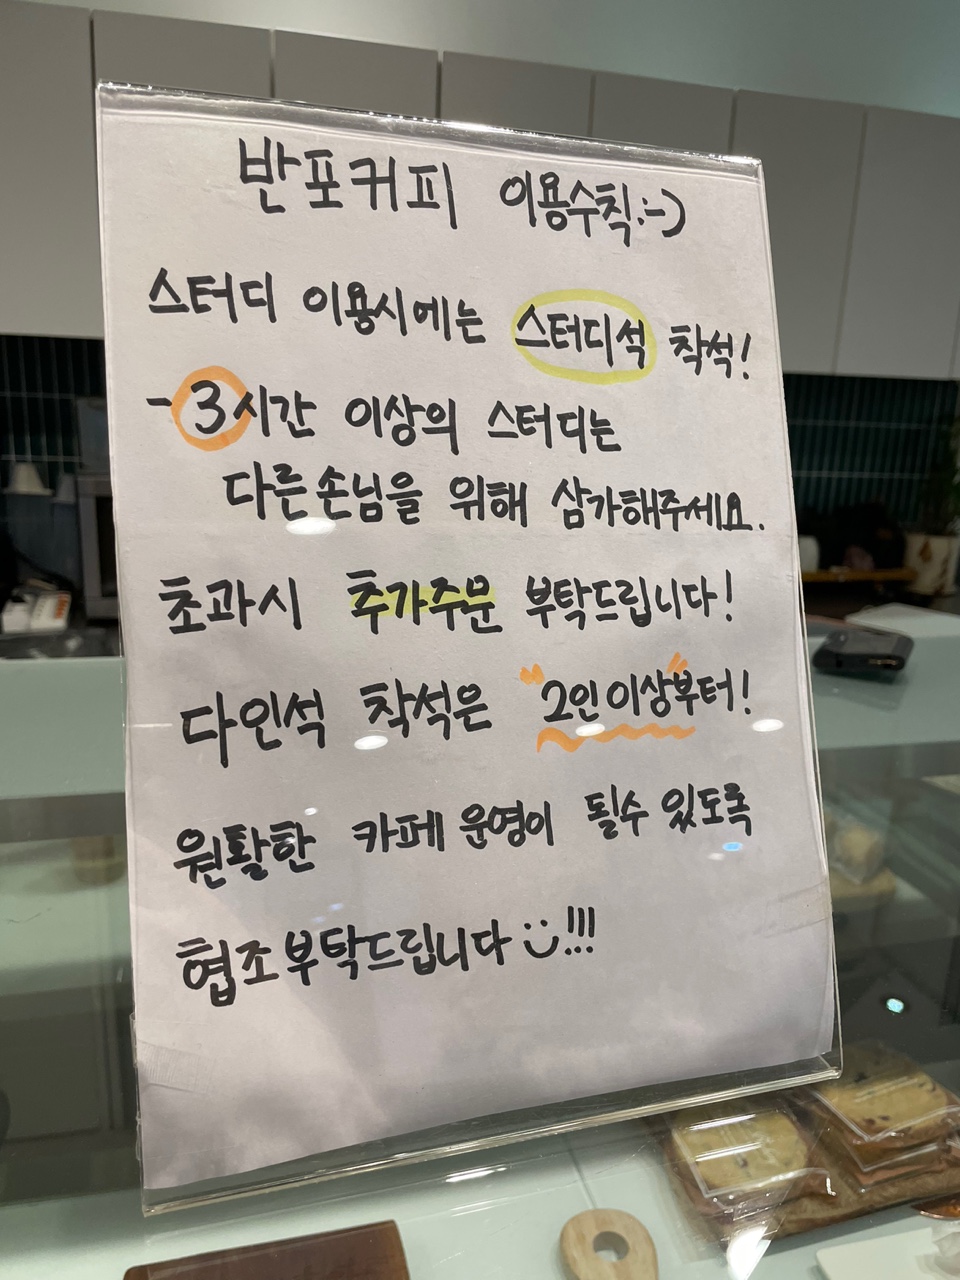 반포커피 이용수칙:-)
스터디 이용시에는 스터디석 착석!
- 3시간 이상의 스터디는
다른손님을 위해 삼가해주세요.
초과시 추가주문 부탁드립니다!
다인석 착석은 "2인이상"부터!
원활한 카페 운영이 될수 있도록
협조부탁드립니다 :) !!!